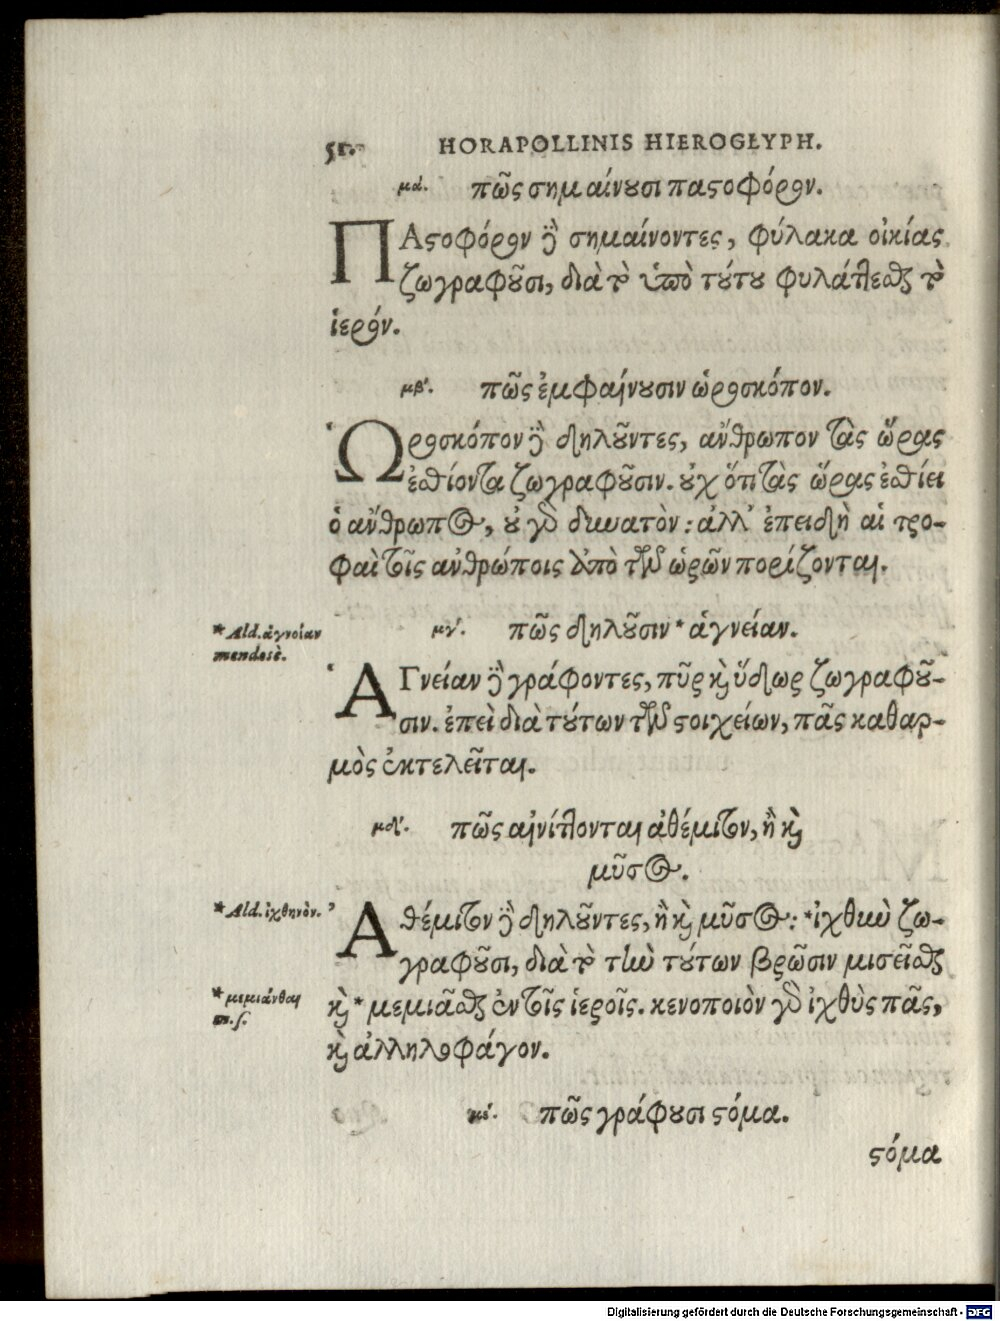 HORAPOLLINIS HIEROGLYPH.
μα΄. πῶς σημαίνουσι παστοφόρον.
ΠΑστοφόρον δὲ σημαίνοντες, φύλακα οἰκίας
ζωγραφοῦσι, διὰ τὸ ὑπὸ τούτου φυλάττεσθαι τὸ
ἱερόν.
μβ΄. πῶς ἐμφαίνουσιν ὡροσκόπον.
Ὡροσκόπον δὲ δηλοῦντες, ἄνθρωπον τὰς ὥρας
ἐσθίοντα ζωγραφοῦσιν. οὐχ ὅτι τὰς ὥρας ἐσθίει
ὁ ἄνθρωπος, οὐ γὰρ δυνατὸν: ἀλλ' ἐπειδὴ αἱ τρο-
φαὶ τοῖς ἀνθρώποις ἀπὸ τῶν ὡρῶν πορίζονται.
*Ald. ἀγνοίαν
mendosè.
μγ΄. πῶς δηλοῦσιν * ἁγνείαν.
ἉΓνείαν δὲ γράφοντες, πῦρ καὶ ὕδωρ ζωγραφοῦ-
σιν. ἐπεὶ διὰ τούτων τῶν στοιχείων, πᾶς καθαρ-
μὸς ἐκτελεῖται.
μδ΄. πῶς αἰνίττονται ἀθέμιτον, ἢ καὶ
μῦσος.
*Ald. ἰχθηνὸν.
Ἀθέμιτον δὲ δηλοῦντες, ἢ καὶ μῦσος: *ἰχθὺν ζω-
γραφοῦσι, διὰ τὸ τὴν τούτων βρῶσιν μισεῖσθαι
*μεμιάνθαι
m. s.
καὶ * μεμιᾶσθαι ἐν τοῖς ἱεροῖς. κενοποιὸν γὰρ ἰχθὺς πᾶς,
καὶ ἀλληλοφάγον.
με΄. πῶς γράφουσι στόμα.
στόμα
Digitalisierung gefördert durch die Deutsche Forschungsgemeinschaft - DFG